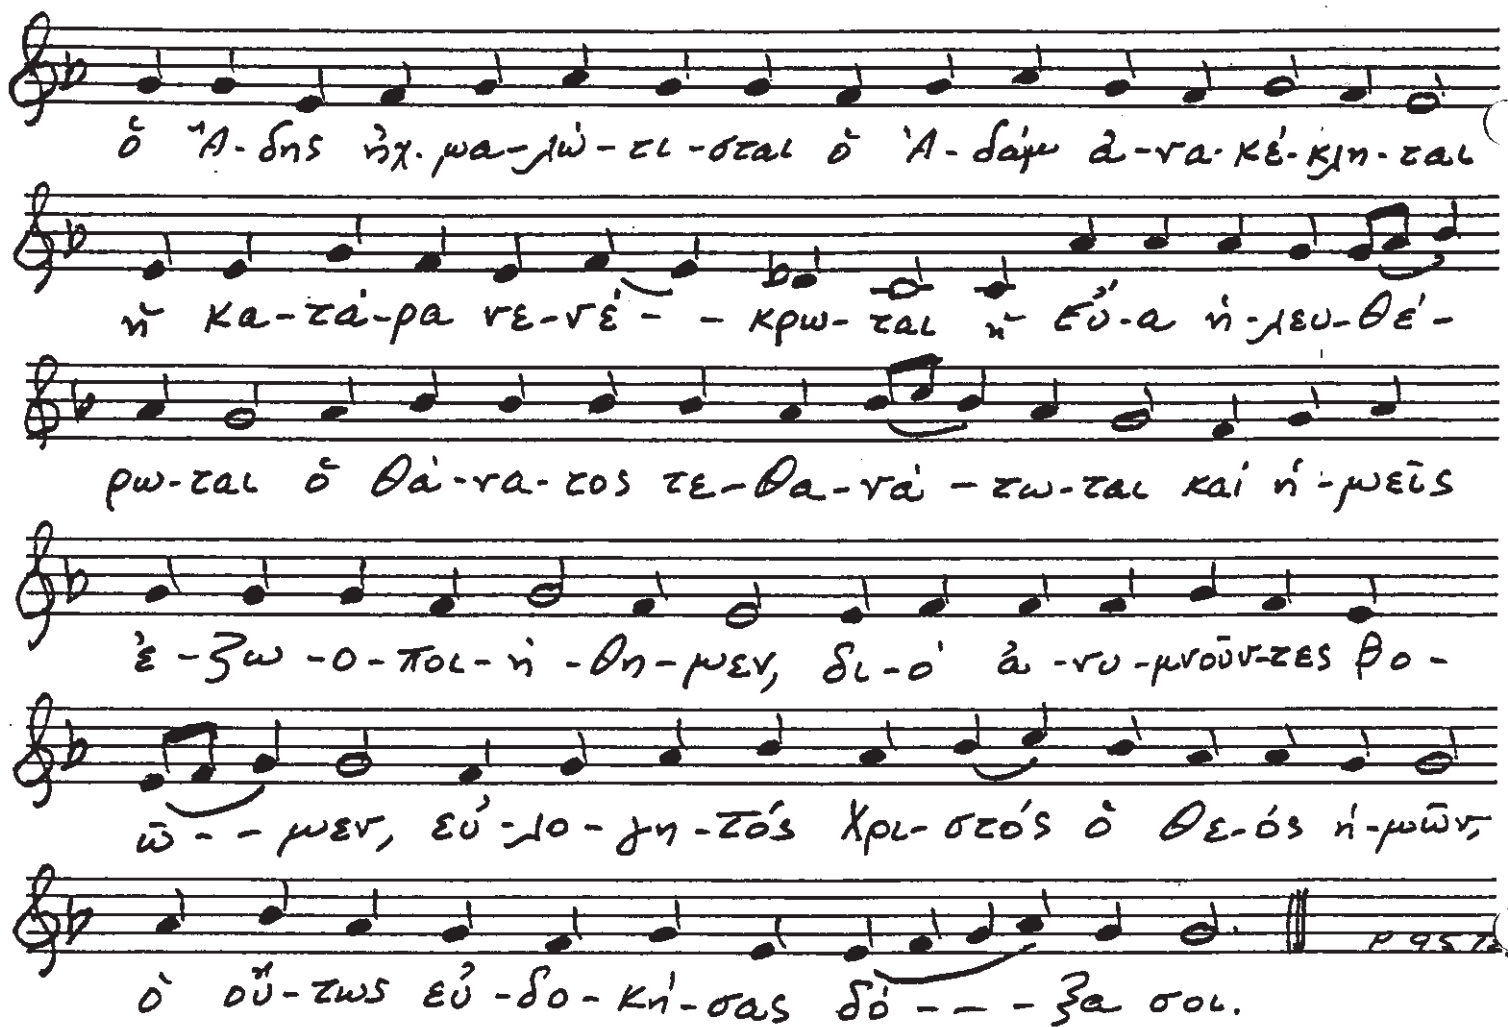 ὁ Ἅ-δης ἠχ-μα-λώ-τι-σται ὁ Ἀ-δάμ ἀ-να-κέ-κλη-ται
ἡ κα-τά-ρα νε-νέ- - κρω-ται ἡ Εὔ-α ἠ-λευ-θέ-
ρω-ται ὁ θά-να-τος τε-θα-νά-τω-ται καί ἡ-μεῖς
ἐ-ζω-ο-ποι-ή-θη-μεν, δι-ό ἀ-νυ-μνοῦν-τες βο-
ῶ- - μεν, εὐ-λο-γη-τός Χρι-στός ὁ Θε-ός ἡ-μῶν,
ὁ οὕ-τως εὐ-δο-κή-σας δό- - - ξα σοι.